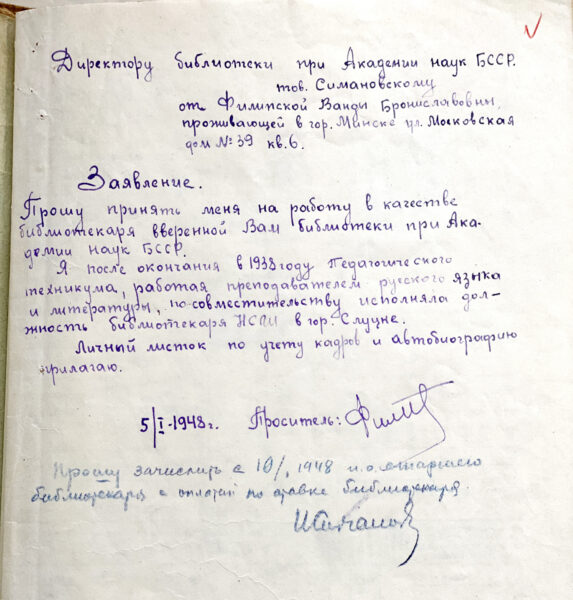 Директору библиотеки при Академии наук БССР.
тов. Симановскому
от Филипской Ванды Брониславовны,
проживающей в гор. Минске ул. Московская
дом № 39 кв. 6.
Заявление.
Прошу принять меня на работу в качестве
библиотекаря вверенной Вам библиотеки при Ака-
демии наук БССР.
Я после окончания в 1938 году Педагогического
техникума, работая преподавателем русского языка
и литературы, по совместительству исполняла дол-
жность библиотекаря НСШ в гор. Слуцке.
Личный листок по учету кадров и автобиографию
прилагаю.
5/I-1948 г. Проситель:
Прошу зачислить с 10/I 1948 и.о. старшего
библиотекаря с оплатой по ставке библиотекаря.